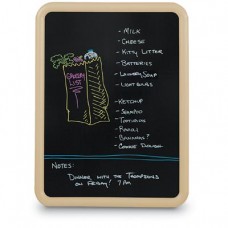 GROCERY
LIST
- MILK
- CHEESE
- KITTY LITTER
- BATTERIES
- LAUNDRY SOAP
- LIGHT BULBS
- KETCHUP
- SHAMPOO
- TORTILLAS
- BAGELS
- BANANAS?
- COOKIE DOUGH
NOTES:
DINNER WITH THE THOMPSONS
ON FRIDAY! 7 PM